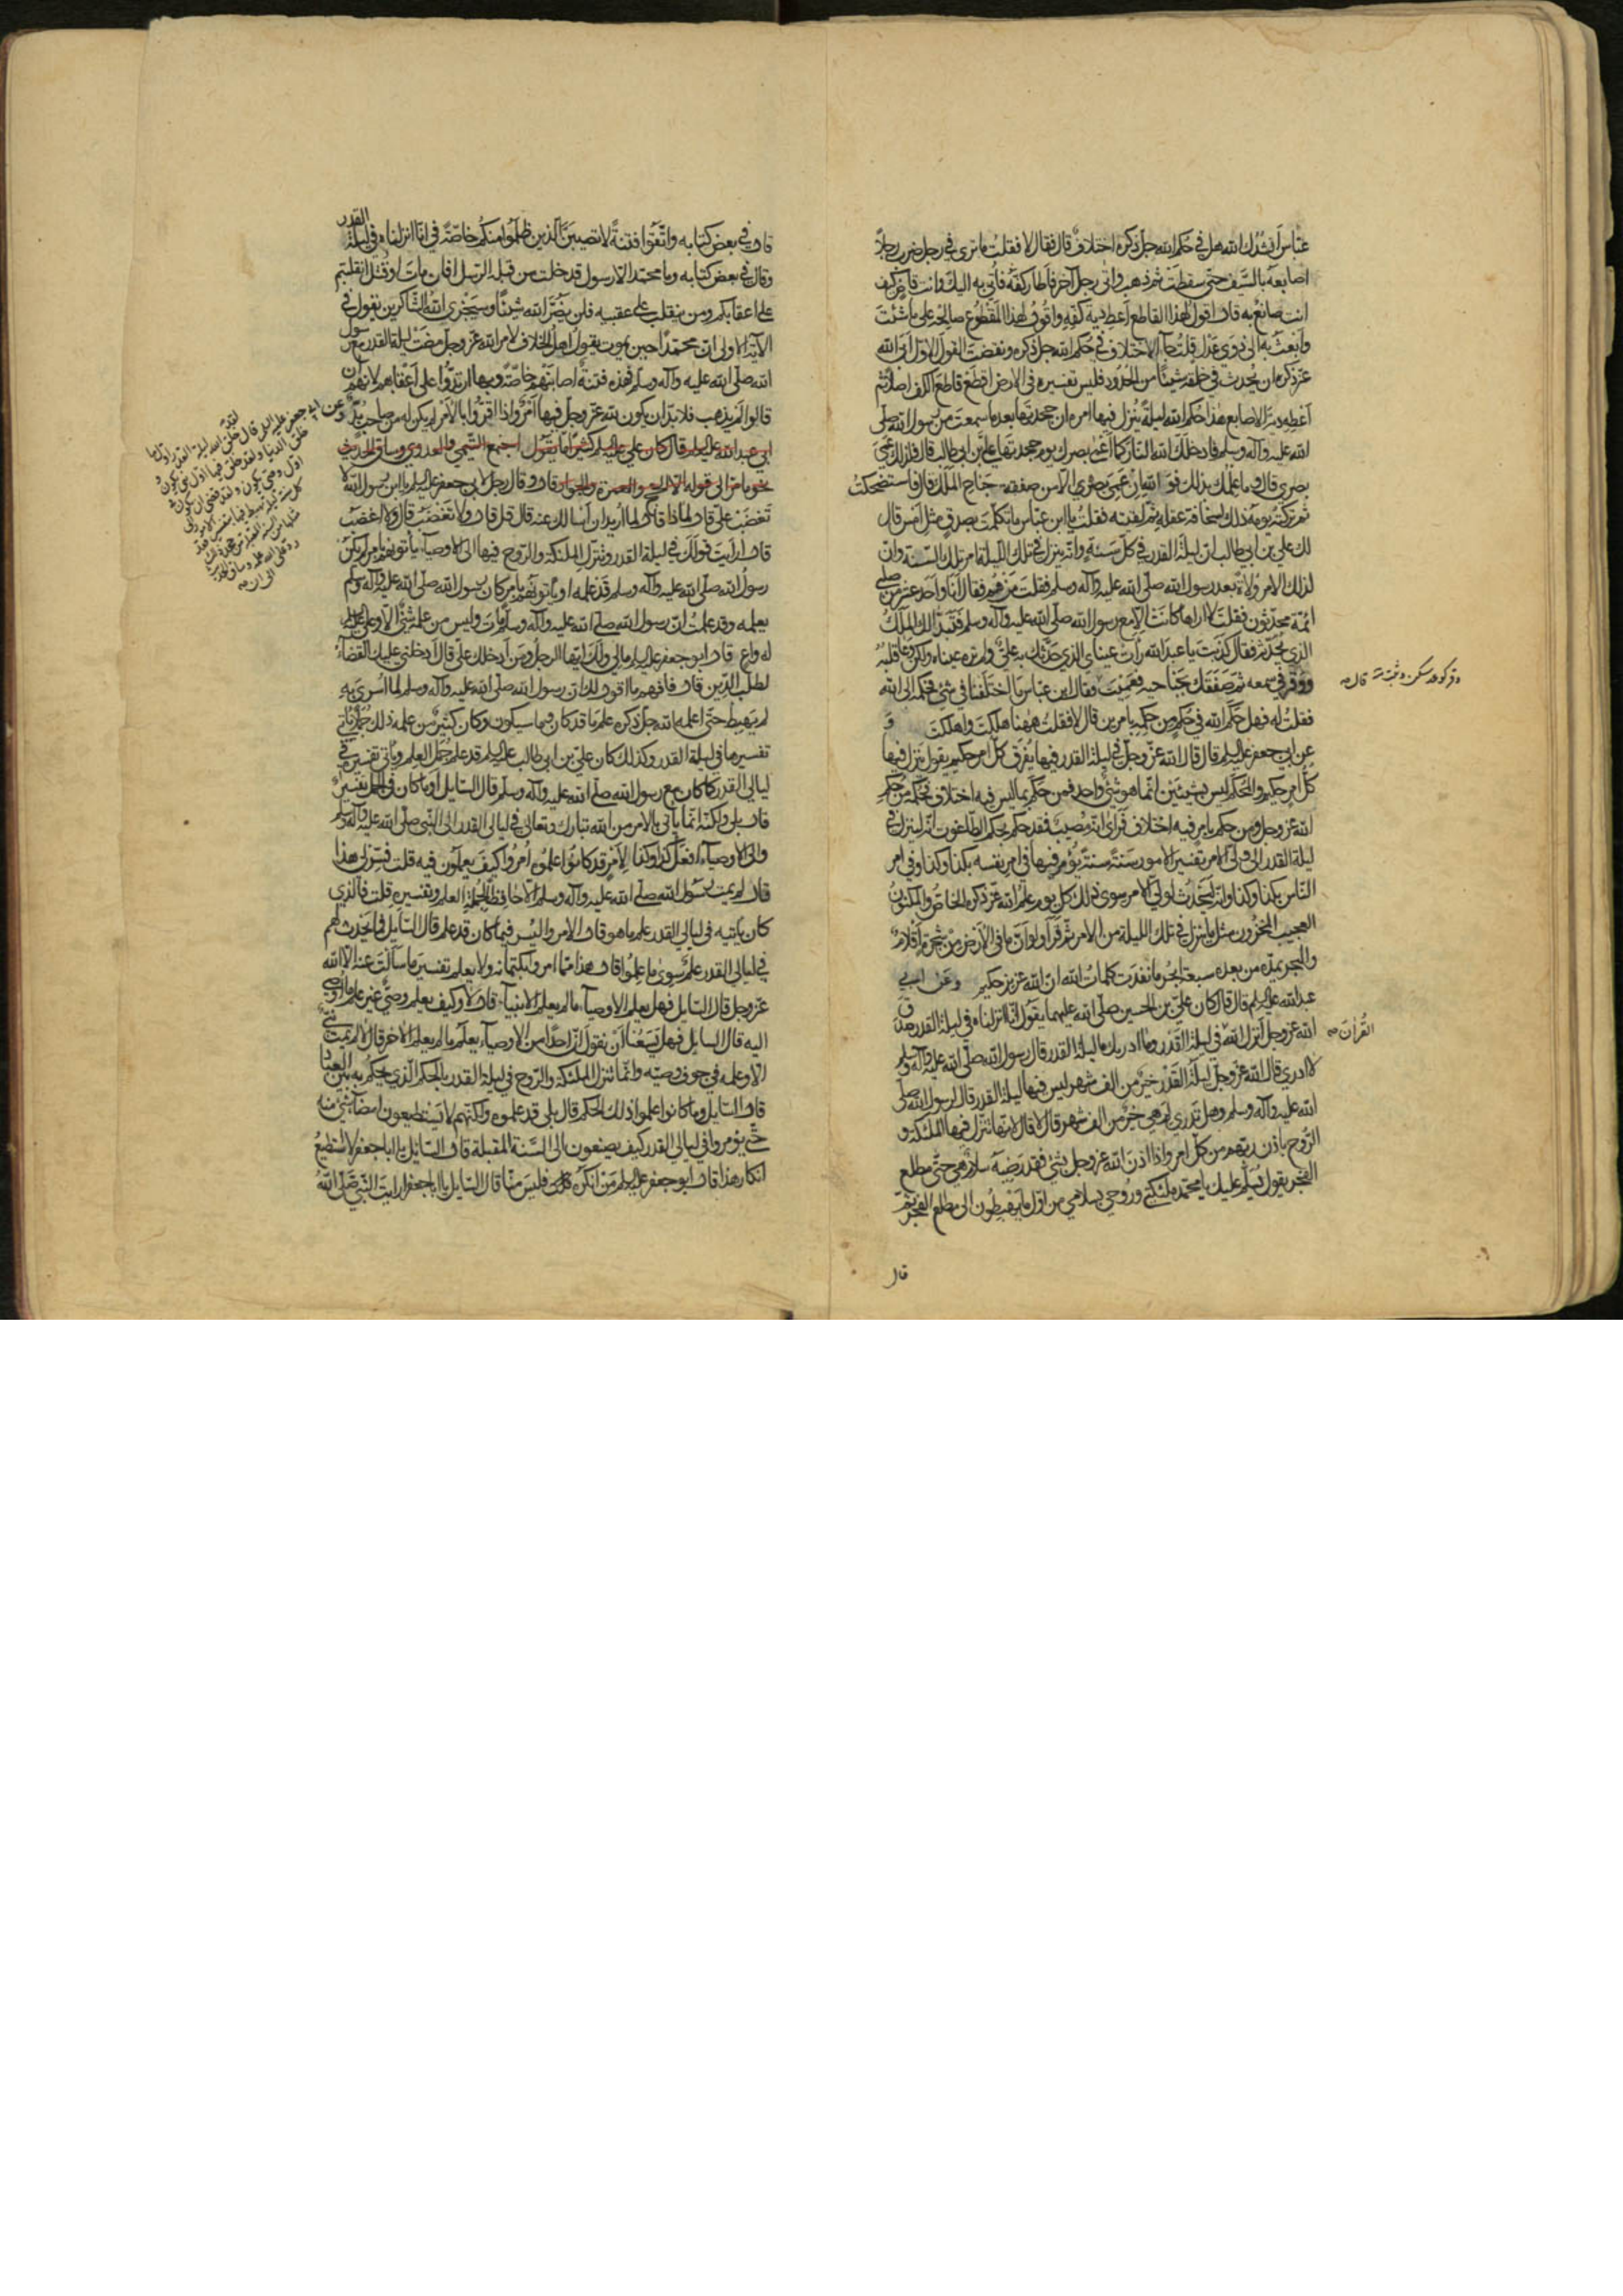 عباس أنشدك الله هل في حكم الله جل ذكره اختلاف قال فقال لا فقلت ما ترى في رجل ضرب رجلا
اصابعه بالسيف حتى سقطت ثم ذهب واتى رجل آخر فأطار كفه فأتي به اليك وانت قاض كيف
انت صانع به قال اقول لهذا القاطع أعطه دية كفه واقول لهذا المقطوع صالحه على ما شئت
وابعث به الى ذوي عدل قلت جاء الاختلاف في حكم الله جل ذكره ونقضت القول الاول ابى الله
عز ذكره ان يحدث في خلقه شيئا من الحدود فليس تفسيره في الارض اقطع قاطع الكف اصلا ثم
أعطه دية الاصابع هذا حكم الله ليلة ينزل فيها امره ان جحدتها بعد ما سمعت من رسول الله صلى
الله عليه وآله وسلم فادخلك الله النار كما أعمى بصرك يوم جحدتها على ابن ابي طالب قال فلذلك عمي
بصري قال وما علمك بذلك فو الله ان عمي بصري الا من صفقة جناح الملك قال فاستضحكت
ثم تركته يومه ذلك لسخافة عقله ثم لقيته فقلت يا ابن عباس ما تكلمت بصدق مثل امس قال
لك علي بن ابي طالب ان ليلة القدر في كل سنة وانه ينزل في تلك الليلة امر تلك السنة وان
لذلك الامر ولاة بعد رسول الله صلى الله عليه وآله وسلم فقلت من هم فقال انا واحد عشر من صلبي
ائمة محدثون فقلت لا اراها كانت الا مع رسول الله صلى الله عليه وآله وسلم فتبدا لك الملك
الذي يحدثه فقال كذبت يا عبد الله رأت عيناي الذي حدثك به علي ولم تره عيناه ولكن وعا قلبه
ووقر في سمعه ثم صفقك بجناحيه فعميت فقال ابن عباس ما اختلفنا في شيء فحكمه الى الله
وقر كوعد سكن وثبت قال
فقلت له فهل حكم الله في حكم من حكمه بامرين قال لا فقلت ههنا هلكت واهلكت و
عن ابي جعفر عليه السلم قال قال الله عز وجل في ليلة القدر فيها يفرق كل امر حكيم يقول ينزل فيها
كل امر حكيم والمحكم ليس بشيئين انما هو شيء واحد فمن حكم بما ليس فيه اختلاف فحكمه من حكم
الله عز وجل ومن حكم بامر فيه اختلاف فرأى انه مصيب فقد حكم بحكم الطاغوت انه لينزل في
ليلة القدر الى ولي الامر تفسير الامور سنة سنة يؤمر فيها في امر نفسه بكذا وكذا وفي امر
الناس بكذا وكذا وانه ليحدث لولي الامر سوى ذلك كل يوم علم الله عز ذكره الخاص والمكنون
العجيب المخزون مثل ما ينزل في تلك الليلة من الامر ثم قرأ ولو ان ما في الارض من شجرة أقلام
والبحر يمده من بعده سبعة ابحر ما نفدت كلمات الله ان الله عزيز حكيم وعن ابي
عبد الله عليه السلم قال قال كان علي بن الحسين صلى الله عليهما يقول انا انزلناه في ليلة القدر صدق
الله عز وجل انزل الله في ليلة القدر وما ادريك ما ليلة القدر قال رسول الله صلى الله عليه وآله وسلم
القرآن
لا ادري قال الله عز وجل ليلة القدر خير من الف شهر ليس فيها ليلة القدر قال لرسول الله صلى
الله عليه وآله وسلم وهل تدري لم هي خير من الف شهر قال لا قال لانها تنزل فيها الملئكة و
الروح باذن ربهم من كل امر واذا اذن الله عز وجل بشيء فقد رضيه سلام هي حتى مطلع
الفجر يقول تسلم عليك يا محمد ملئكتي وروحي بسلامي من اول ما يهبطون الى مطلع الفجر ثم
قال
قال في بعض كتابه واتقوا فتنة لا تصيبن الذين ظلموا منكم خاصة في انا انزلناه في ليلة القدر
وقال في بعض كتابه وما محمد الا رسول قد خلت من قبله الرسل افان مات او قتل انقلبتم
على اعقابكم ومن ينقلب على عقبيه فلن يضر الله شيئا وسيجزي الله الشاكرين يقول في
الآية الاولى ان محمدا حين يموت يقول اهل الخلاف لامر الله عز وجل مضت ليلة القدر مع رسول
الله صلى الله عليه وآله وسلم فهذه فتنة اصابتهم خاصة وبها ارتدوا على أعقابهم لانهم ان
قالوا لم يذهب فلا بد ان يكون لله عز وجل فيها أمر واذا اقروا بالامر لم يكن له من صاحب بد
ابي عبد الله عليه السلم قال كان علي عليه السلم كثيرا ما يقول اجتمع التيمي والعدوي وساق الحديث
قال وقال رجل لابي جعفر عليه السلم يا ابن رسول الله لا
تغضب علي قال لماذا قال لما اريد ان اسالك عنه قال قل قال ولا تغضب قال ولا اغضب
قال ارأيت قولك في ليلة القدر وتنزل الملئكة والروح فيها الى الاوصياء يأتونهم بامر لم يكن
رسول الله صلى الله عليه وآله وسلم قد علمه او يأتونهم بامر كان رسول الله صلى الله عليه وآله وسلم
يعلمه وقد علمت ان رسول الله صلى الله عليه وآله وسلم مات وليس من علمه شيء الا وعلي عليه السلم
له واع قال ابو جعفر عليه السلم مالي ولك ايها الرجل ومن أدخلك علي قال أدخلني عليك القضاء
لطلب الدين قال فافهم ما اقول لك ان رسول الله صلى الله عليه وآله وسلم لما اسري به
لم يهبط حتى اعلمه الله جل ذكره علم ما قد كان وما سيكون وكان كثير من علمه ذلك جملا يأتي
تفسيرها في ليلة القدر وكذلك كان علي بن ابي طالب عليه السلم قد علم جمل العلم ويأتي تفسيره في
ليالي القدر كما كان مع رسول الله صلى الله عليه وآله وسلم قال السايل أوما كان في الجمل تفسير
قال بلى ولكنه انما يأتي بالامر من الله تبارك وتعالى في ليالي القدر الى النبي صلى الله عليه وآله وسلم
والى الاوصياء افعل كذا وكذا الامر قد كانوا علموه أمروا كيف يعملون فيه قلت فسر لي هذا
قال لم يمت رسول الله صلى الله عليه وآله وسلم الا حافظا لجملة العلم وتفسيره قلت فالذي
كان يأتيه في ليالي القدر علم ما هو قال الامر واليسر فيما كان قد علم قال السايل فما يحدث لهم
في ليالي القدر علم سوى ما علموا قال هذا مما امروا بكتمانه ولا يعلم تفسير ما سالت عنه الا الله
عز وجل قال السايل فهل يعلم الاوصياء ما لم يعلم الانبياء قال لا وكيف يعلم وصي غير علم ما اوصي
اليه قال السايل فهل يسعنا ان نقول ان احدا من الاوصياء يعلم ما لم يعلم الاخر قال لا لم يمت نبي
الا وعلمه في جوف وصيه وانما تنزل الملئكة والروح في ليلة القدر بالحكم الذي يحكم به بين العباد
قال السايل وما كانوا علموا ذلك الحكم قال بلى قد علموه ولكنهم لا يستطيعون امضاء شيء منه
حتى يؤمروا في ليالي القدر كيف يصنعون الى السنة المقبلة قال السايل يا ابا جعفر لا استطيع
انكار هذا قال ابو جعفر عليه السلم من أنكره فليس منا قال السايل يا ابا جعفر ارايت النبي صلى الله
وعن ابي جعفر عليه السلم قال
لقد خلق الله ليلة القدر اول ما
خلق الدنيا ولقد خلق فيها اول نبي يكون